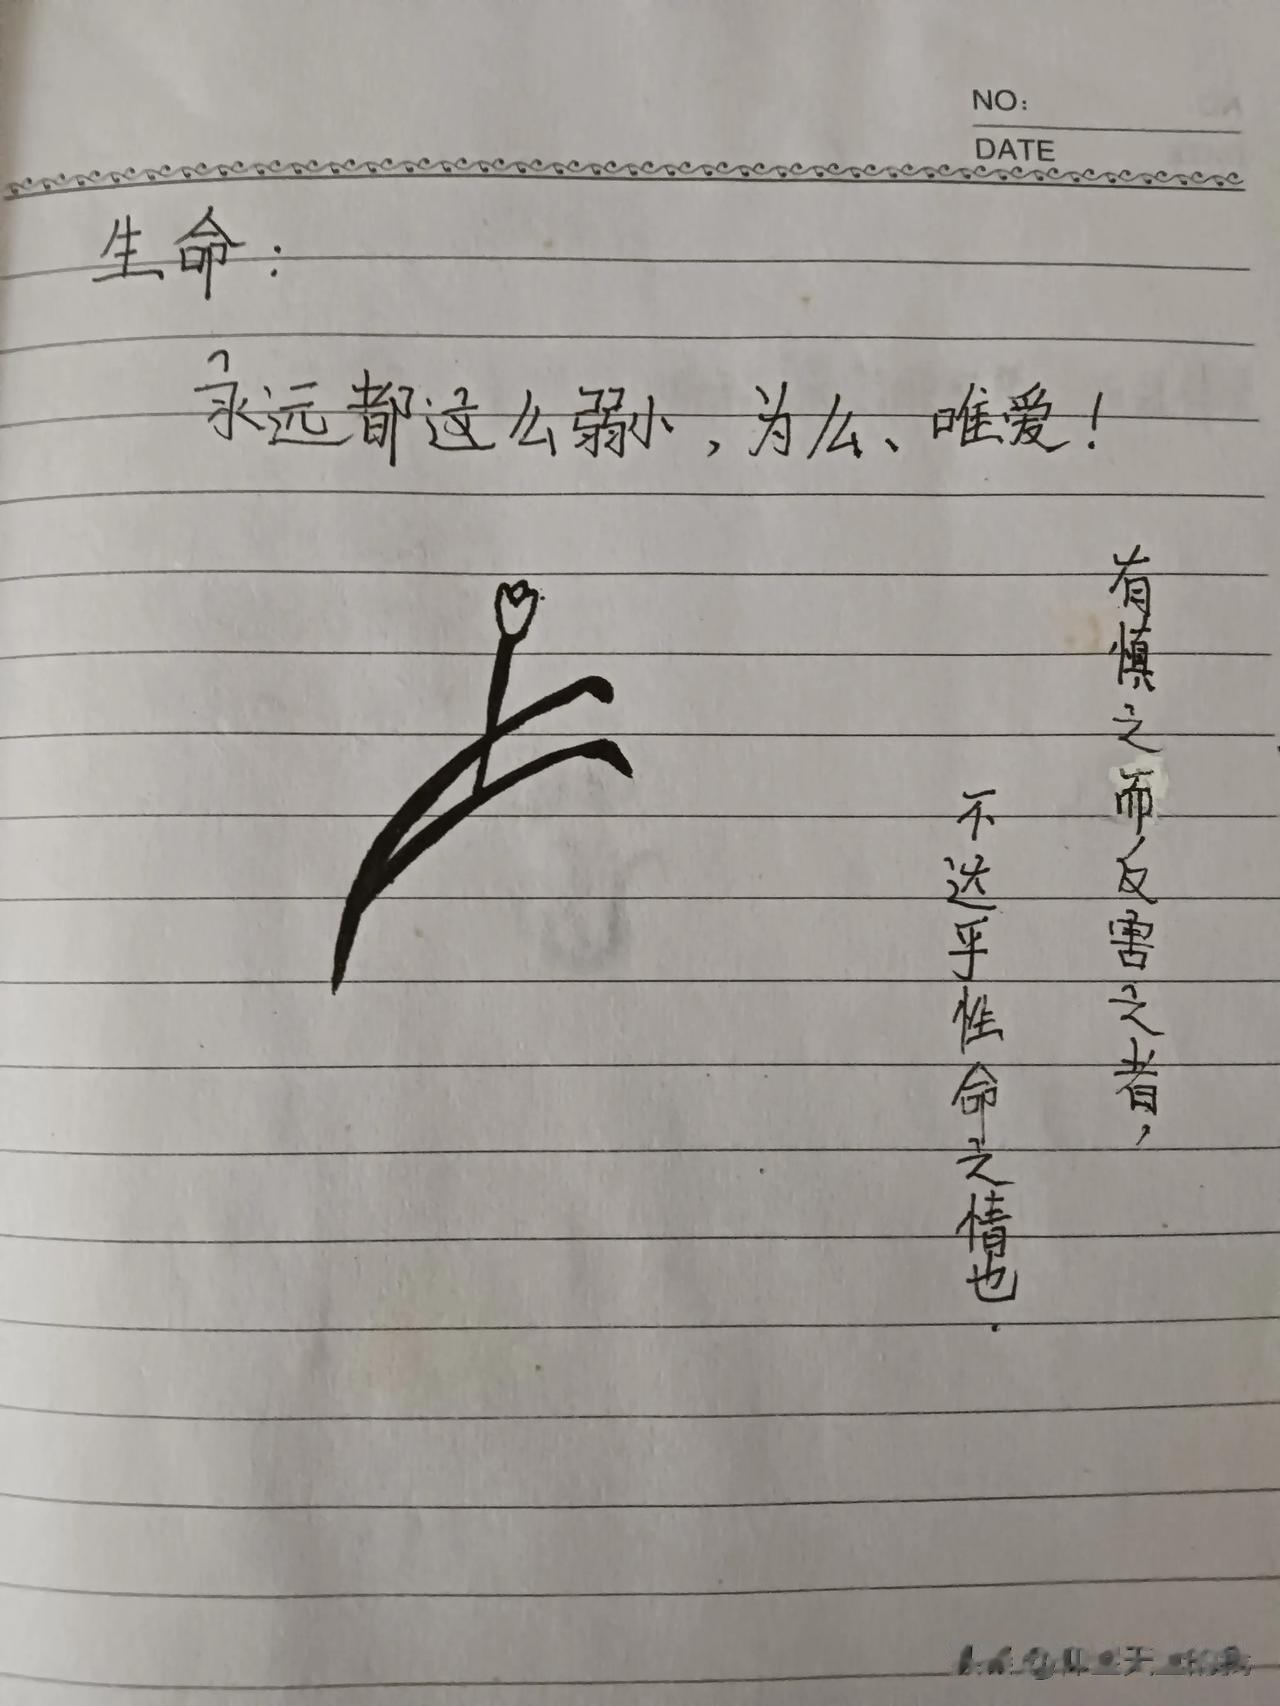 NO:
DATE
生命：
永远都这么弱小，为么、唯爱！
有慎之而反害之者，
不达乎性命之情也.